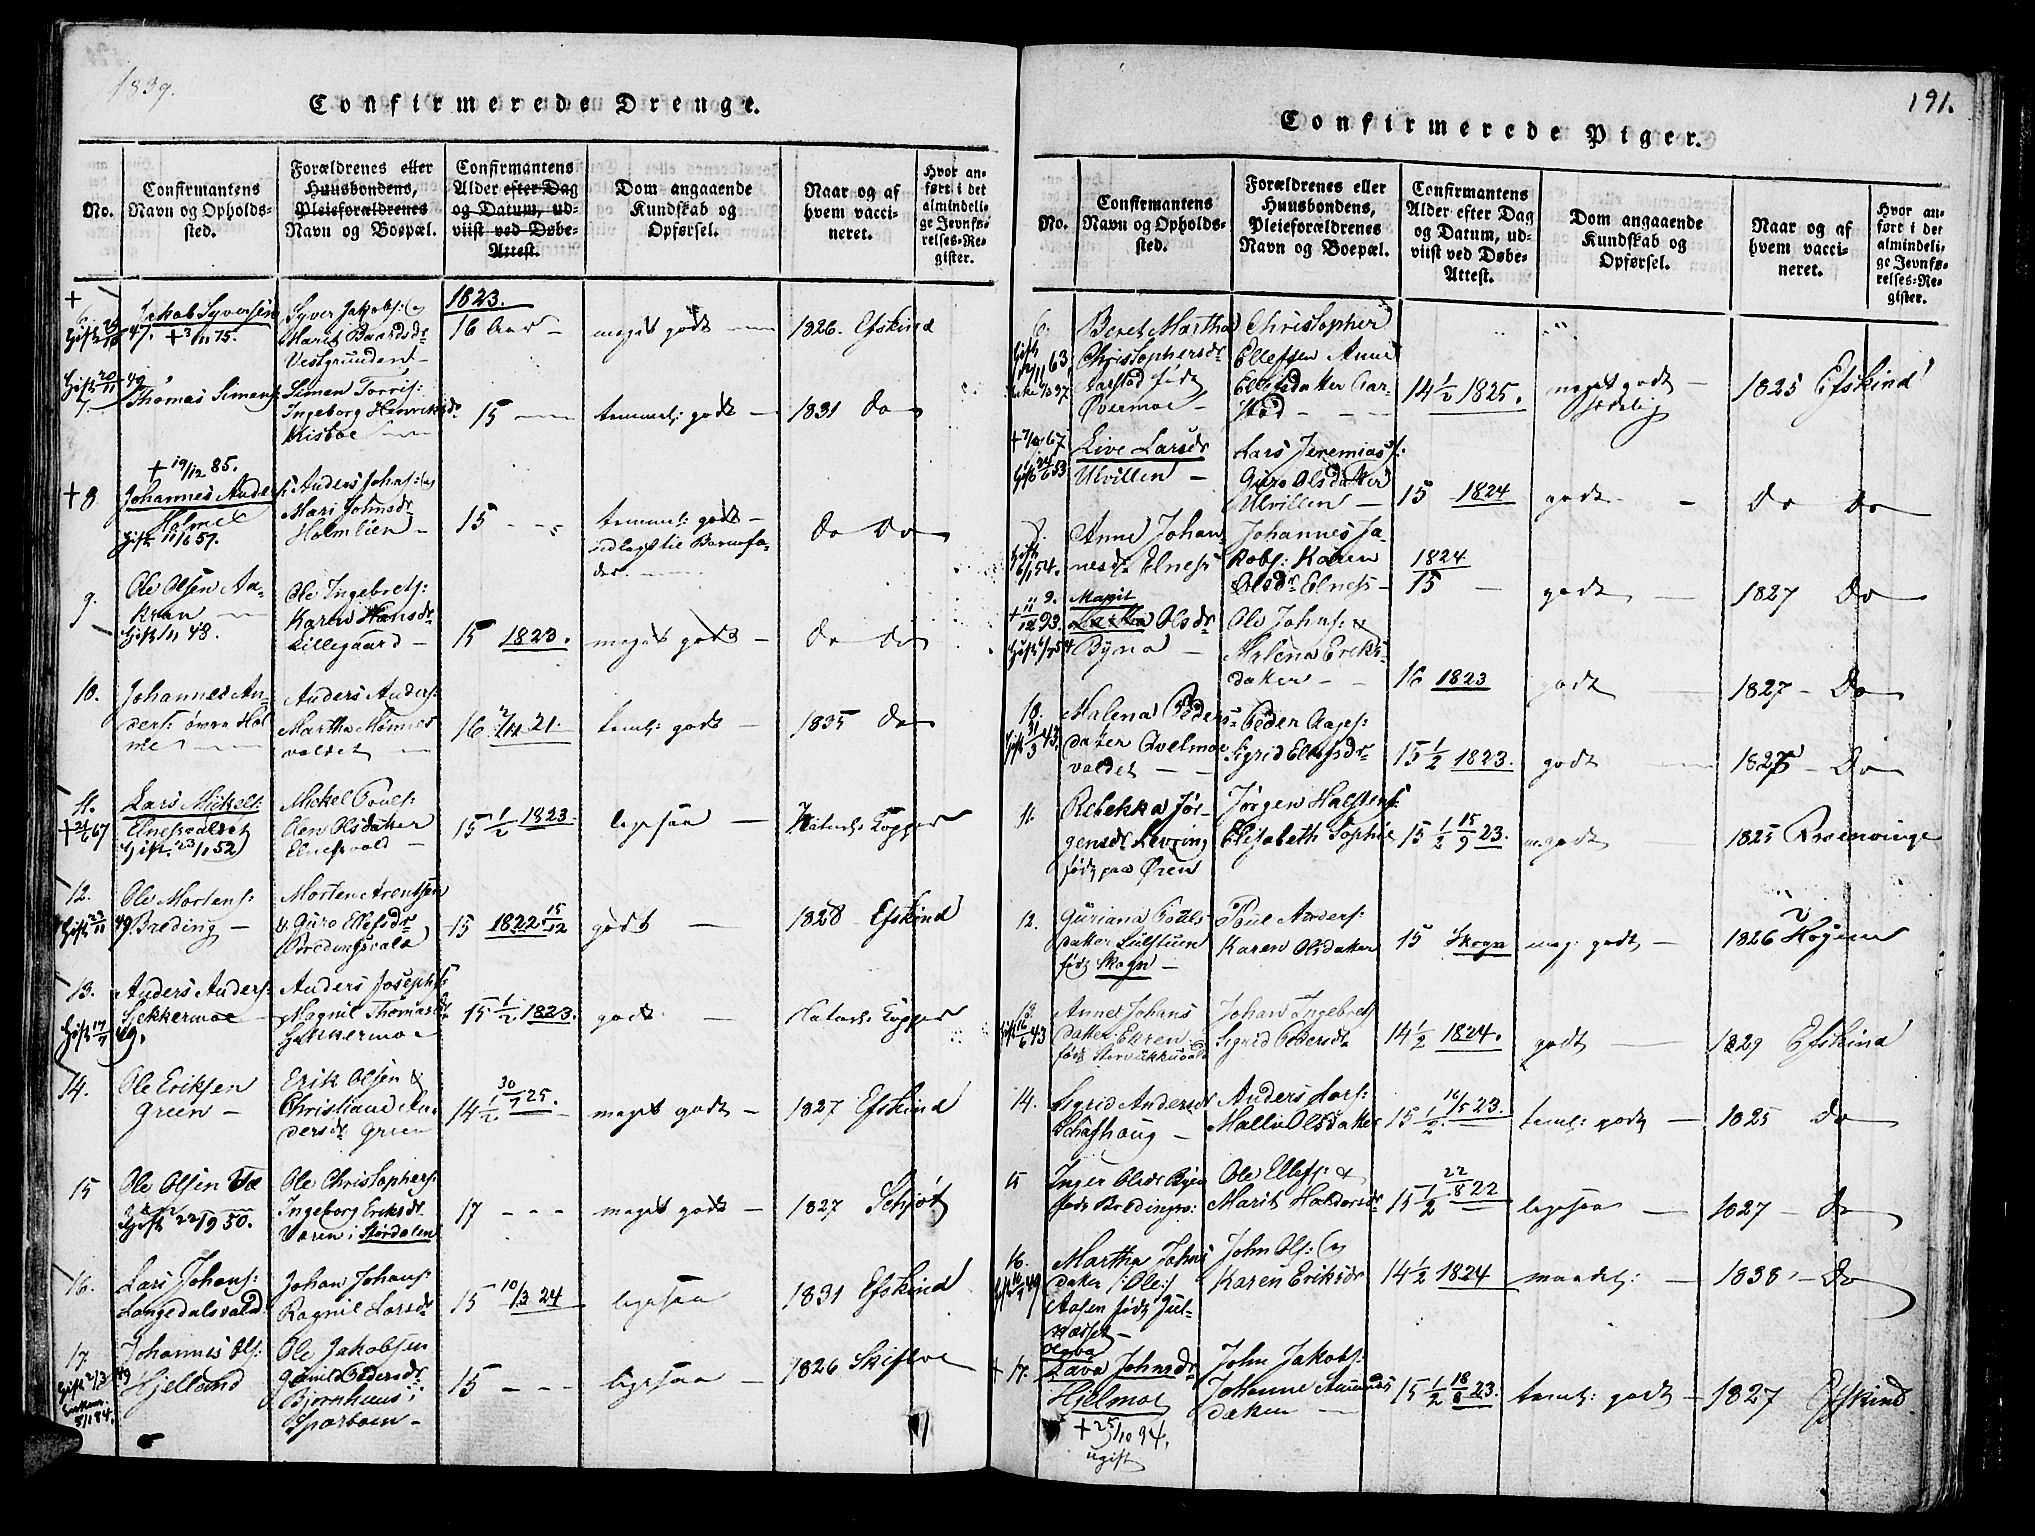 1839.
Confirmerede Drenge.
No.
Confirmantens
Navn og Opholds-
sted.
Forældrenes eller
Huusbondens,
Pleieforældrenes
Navn og Boepæl.
Confirmantens
Alder efter Dag
og Datum, ud-
viist ved Døbe-
Attest.
Dom angaaende
Kundskab og
Opførsel.
Naar og af
hvem vacci-
neret.
Hvor an-
ført i det
almindeli-
ge Jevnfø-
relses-Re-
gister.
+
6.
Jakob Syversen
+ 3/11 75.
Syver Jakobs: og
Marit Baardsdr
Vestgrunden
1823.
16 Aar
meget godt
1826. Efskind
Gift 20/11 49
7
Thomas Simens:
Simen Torris:
Ingeborg Henriksdr
15
temmel: godt
1831 do
+ 8
+ 19/12 85.
Johannes Anders:
Holmli
Gift 11/6 57.
Anders Johns: og
Mari Johnsdr
Holmlien
15
temmel: godt
do do
9.
Ole Olsen Aa-
kran
Gift 1/11 48.
Ole Ingebrets:
Karen Hansdr
Lillegaard
15 1823.
meget godt
do do
10.
Johannes An-
ders: øvre Hol-
me
Anders Anders:
Martha Monnes
valdet
16 2/11 21.
teml: godt
1835 do
11.
+ 21/6 67
Lars Mickels:
Elnesvaldet
Gift 23/11 52
Mickel Pouls:
Elen Olsdatter
Elnesvald
15 1/2 1823.
ligesaa
Naturl: Kopper
12.
Gift 23/11 49
Ole Mortens:
Breding
Morten Arentsen
& Guro Ellefsdr
Bredingsvald
15 1822 15/12
godt
1828 Efskind
13.
Gift 17/7 49.
Anders Anders:
Sekkermoe
Anders Josephs:
Magnil Thomasdr
Sekkermoe
15 1/2 1823.
godt
Naturl: Kopper
14.
Ole Eriksen
Green
Erik Olsen &
Christiane An-
dersdr Green
14 1/2 30/7 25.
meget godt
1827 Efskind
15
Ole Olsen Væ
Gift 22/9 50.
Ole Christophers:
Ingeborg Eriksdr
Væren i Størdalen
17
meget godt
1827 Schjøt
16.
Lars Johans:
Langedalsvald
Johan Johans:
Ragnil Larsdr
15 10/3 24
ligesaa
1831 Efskind
17.
Gift 2/3 49
Enkem.
5/1 84.
Johannes Ols:
Hjelland
Ole Jakobsen
Gunild Pedersdr
Bjørnhuus i
Sparboen
15
ligesaa
1826
191.
Confirmerede Piger.
No.
Confirmantens
Navn og Opholds-
sted.
Forældrenes eller
Huusbondens,
Pleieforældrenes
Navn og Boepæl.
Confirmantens
Alder efter Dag
og Datum, ud-
viist ved Døbe-
Attest.
Dom angaaende
Kundskab og
Opførsel.
Naar og af
hvem vacci-
neret.
Hvor an-
ført i det
almindeli-
ge Jevnfø-
relses-Re-
gister.
6.
Beret Martha
Christophersdr
Aarstad født
Overmoe
Christopher
Ellefsen Anne
Ellefsdatter Aar-
stad
14 1/2 1825.
meget godt
sædelig
1825 Efskind
Gift 24/6 53
Live Larsdr
Ulvillen
Lars Jeremias:
Guro Olsdatter
Ulvillen
15 1824
godt
do do
8.
Anne Johan-
nesdr Elnes
Johannes Ja-
kobs: Karen
Olsdr Elnes
1824
15
godt
1827 do
9.
+ 11/12 93.
Magit
Olsdr
Byna
Ole Johns: &
Malena Eriks-
datter
16 1823
godt
1827 do
10.
Gift 31/3 43.
Malena Peders-
datter Qvelmoe
valdet
Peder Aages:
Sigrid Ellefsdr
15 1/2 1823.
godt
1825 do
11.
Rebekka Jør-
gensdr Levring
født paa Øren
Jørgen Halstens:
Elisabeth Sophie
15 1/2 15/9 23.
m. godt
1825 Rosenvinge
12.
Guriana Pouls
datter Lillstuen
født Skogn
Poul Anders:
Karen Olsdatter
15 Skogn
meg: godt
1826 Kogen
13.
Gift 16/6 43
Anne Johans
datter Ekren
Johan Ingebrets
Sigrid Pedersdr
14 1/2 1824.
godt
1829 Efskind
14.
Sigrid Andersdr
Schafhoug
Anders Lars:
Malli Olsdatter
15 1/2 16/5 23.
teml: godt
1825 do
15
Inger Olsdr Byen
født Bredingsv:
Ole Ellefs: &
Marit Haldorsdr
15 1/2 22/8 22
ligesaa
1827 do
16.
Martha Johns
datter /:Ole:/
Aasen født Jul-
næsset
John Ols: og
Karen Eriksdr
14 1/2 1824
maadel:
1838 do
+ 17.
Olava
Lava Johnsdr
Hjelmoe
+ 25/10 94.
ugift
John Jakobs:
Johanne Asmunds
datter
15 1/2 18/8 23.
teml: godt
1827 Efskind